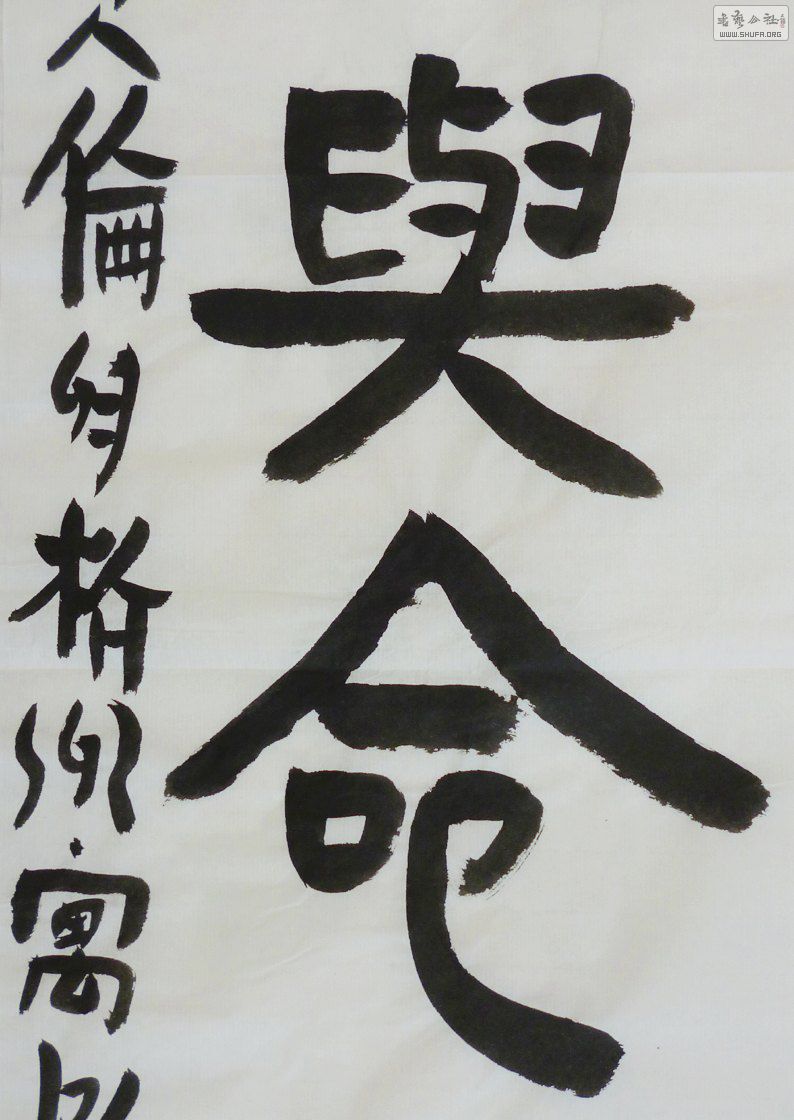 與命
倫杭州寓
書藝公社
WWW.SHUFA.ORG